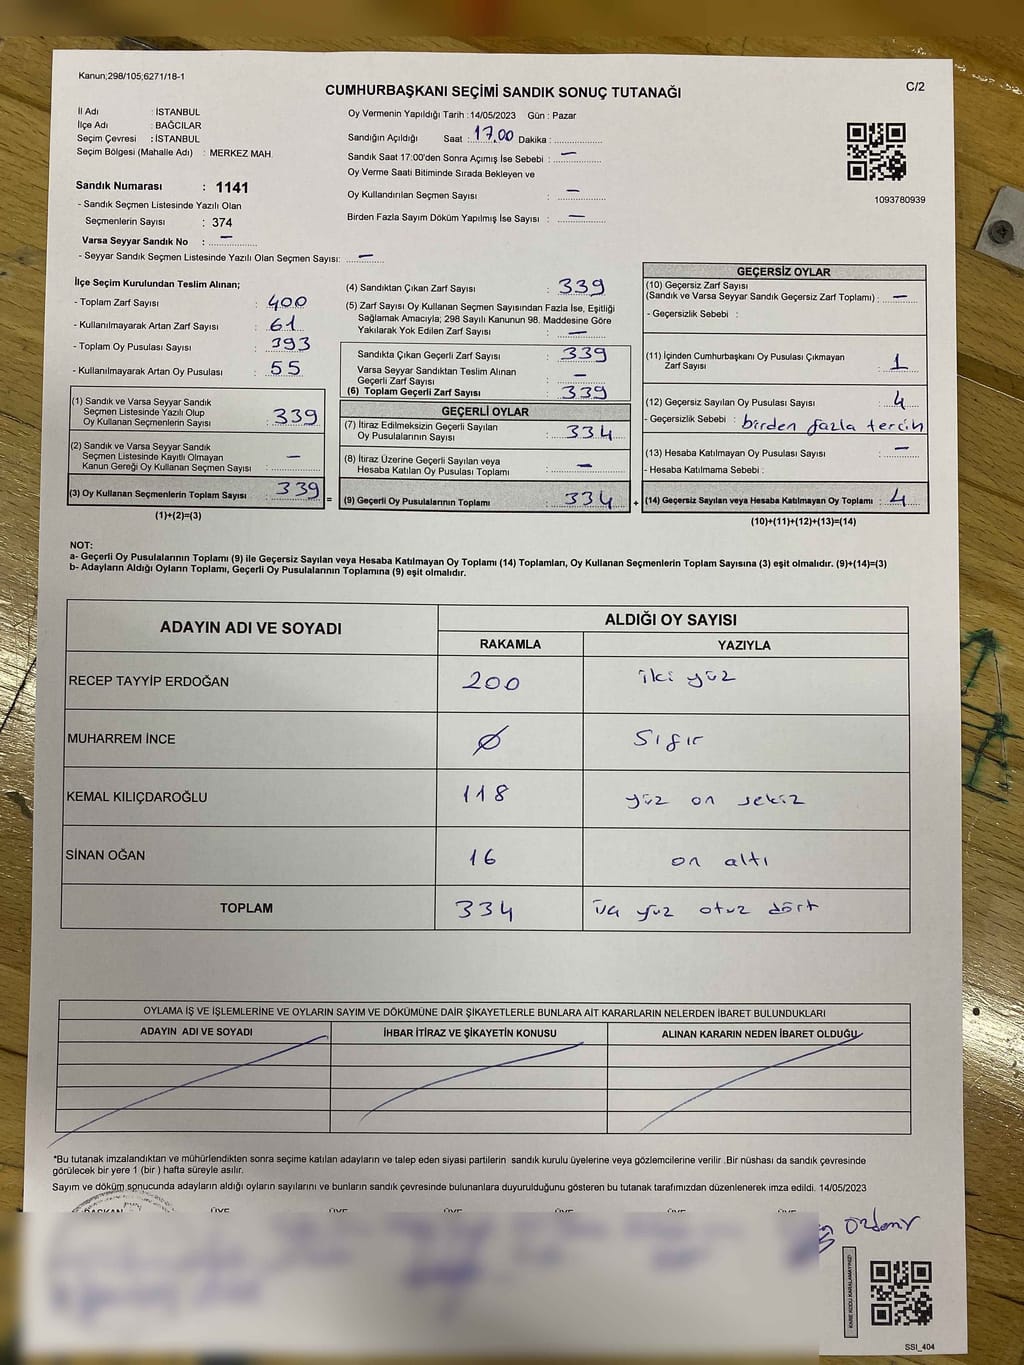 Kanun;298/105;6271/18-1
CUMHURBAŞKANI SEÇİMİ SANDIK SONUÇ TUTANAĞI
C/2
İl Adı : İSTANBUL
İlçe Adı : BAĞCILAR
Seçim Çevresi : İSTANBUL
Seçim Bölgesi (Mahalle Adı) : MERKEZ MAH.
Sandık Numarası : 1141
- Sandık Seçmen Listesinde Yazılı Olan
Seçmenlerin Sayısı : 374
Varsa Seyyar Sandık No : —
- Seyyar Sandık Seçmen Listesinde Yazılı Olan Seçmen Sayısı: —
Oy Vermenin Yapıldığı Tarih :14/05/2023 Gün : Pazar
Sandığın Açıldığı Saat : 17,00 Dakika :
Sandık Saat 17:00'den Sonra Açımış İse Sebebi : —
Oy Verme Saati Bitiminde Sırada Bekleyen ve
Oy Kullandırılan Seçmen Sayısı : —
Birden Fazla Sayım Döküm Yapılmış İse Sayısı : —
1093780939
İlçe Seçim Kurulundan Teslim Alınan;
- Toplam Zarf Sayısı : 400
- Kullanılmayarak Artan Zarf Sayısı : 61
- Toplam Oy Pusulası Sayısı : 393
- Kullanılmayarak Artan Oy Pusulası : 55
(1) Sandık ve Varsa Seyyar Sandık
Seçmen Listesinde Yazılı Olup
Oy Kullanan Seçmenlerin Sayısı : 339
(2) Sandık ve Varsa Seyyar Sandık
Seçmen Listesinde Kayıtlı Olmayan
Kanun Gereği Oy Kullanan Seçmen Sayısı : —
(3) Oy Kullanan Seçmenlerin Toplam Sayısı : 339 =
(1)+(2)=(3)
(4) Sandıktan Çıkan Zarf Sayısı : 339
(5) Zarf Sayısı Oy Kullanan Seçmen Sayısından Fazla İse, Eşitliği
Sağlamak Amacıyla; 298 Sayılı Kanunun 98. Maddesine Göre
Yakılarak Yok Edilen Zarf Sayısı : —
Sandıkta Çıkan Geçerli Zarf Sayısı : 339
Varsa Seyyar Sandıktan Teslim Alınan
Geçerli Zarf Sayısı : —
(6) Toplam Geçerli Zarf Sayısı : 339
GEÇERLİ OYLAR
(7) İtiraz Edilmeksizin Geçerli Sayılan
Oy Pusulalarının Sayısı : 334
(8) İtiraz Üzerine Geçerli Sayılan veya
Hesaba Katılan Oy Pusulası Toplamı : —
(9) Geçerli Oy Pusulalarının Toplamı : 334 +
GEÇERSİZ OYLAR
(10) Geçersiz Zarf Sayısı
(Sandık ve Varsa Seyyar Sandık Geçersiz Zarf Toplamı) : —
- Geçersizlik Sebebi :
(11) İçinden Cumhurbaşkanı Oy Pusulası Çıkmayan
Zarf Sayısı : 1
(12) Geçersiz Sayılan Oy Pusulası Sayısı : 4
- Geçersizlik Sebebi : birden fazla tercih
(13) Hesaba Katılmayan Oy Pusulası Sayısı : —
- Hesaba Katılmama Sebebi :
(14) Geçersiz Sayılan veya Hesaba Katılmayan Oy Toplamı : 4
(10)+(11)+(12)+(13)=(14)
NOT:
a- Geçerli Oy Pusulalarının Toplamı (9) ile Geçersiz Sayılan veya Hesaba Katılmayan Oy Toplamı (14) Toplamları, Oy Kullanan Seçmenlerin Toplam Sayısına (3) eşit olmalıdır. (9)+(14)=(3)
b- Adayların Aldığı Oyların Toplamı, Geçerli Oy Pusulalarının Toplamına (9) eşit olmalıdır.
ADAYIN ADI VE SOYADI
ALDIĞI OY SAYISI
RAKAMLA YAZIYLA
RECEP TAYYİP ERDOĞAN 200 iki yüz
MUHARREM İNCE Ø Sıfır
KEMAL KILIÇDAROĞLU 118 yüz on sekiz
SİNAN OĞAN 16 on altı
TOPLAM 334 üç yüz otuz dört
OYLAMA İŞ VE İŞLEMLERİNE VE OYLARIN SAYIM VE DÖKÜMÜNE DAİR ŞİKAYETLERLE BUNLARA AİT KARARLARIN NELERDEN İBARET BULUNDUKLARI
ADAYIN ADI VE SOYADI İHBAR İTİRAZ VE ŞİKAYETİN KONUSU ALINAN KARARIN NEDEN İBARET OLDUĞU
*Bu tutanak imzalandıktan ve mühürlendikten sonra seçime katılan adayların ve talep eden siyasi partilerin sandık kurulu üyelerine veya gözlemcilerine verilir .Bir nüshası da sandık çevresinde
görülecek bir yere 1 (bir ) hafta süreyle asılır.
Sayım ve döküm sonucunda adayların aldığı oyların sayılarını ve bunların sandık çevresinde bulunanlara duyurulduğunu gösteren bu tutanak tarafımızdan düzenlenerek imza edildi. 14/05/2023
BAŞKAN ÜYE ÜYE ÜYE ÜYE ÜYE ÜYE
KARE KODU KARALAMAYINIZ!
SSI_404